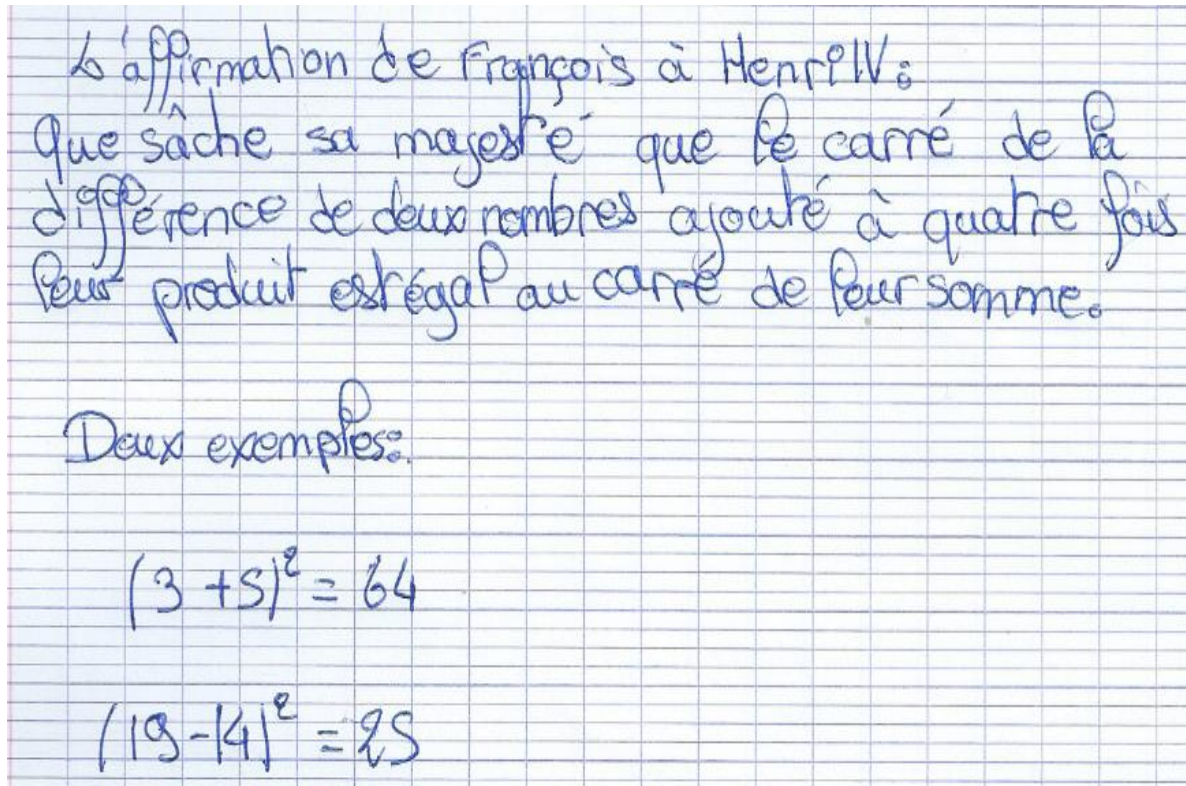 L'affirmation de François à Henri IV:
Que sâche sa majesté que le carré de la
différence de deux nombres ajouté à quatre fois
leur produit est égal au carré de leur somme.
Deux exemples:
(3+5)² = 64
(19-14)² = 25